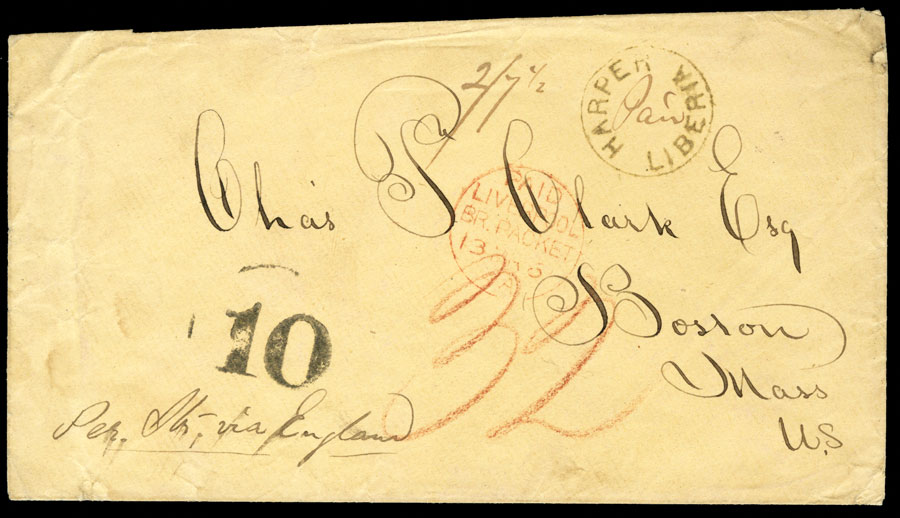 2/7½
HARPER LIBERIA
Paid
Chas T. Clark Esq
PAID
LIVERPOOL
BR. PACKET
13
32
Boston
Mass
U.S
10
Per. Str, via England